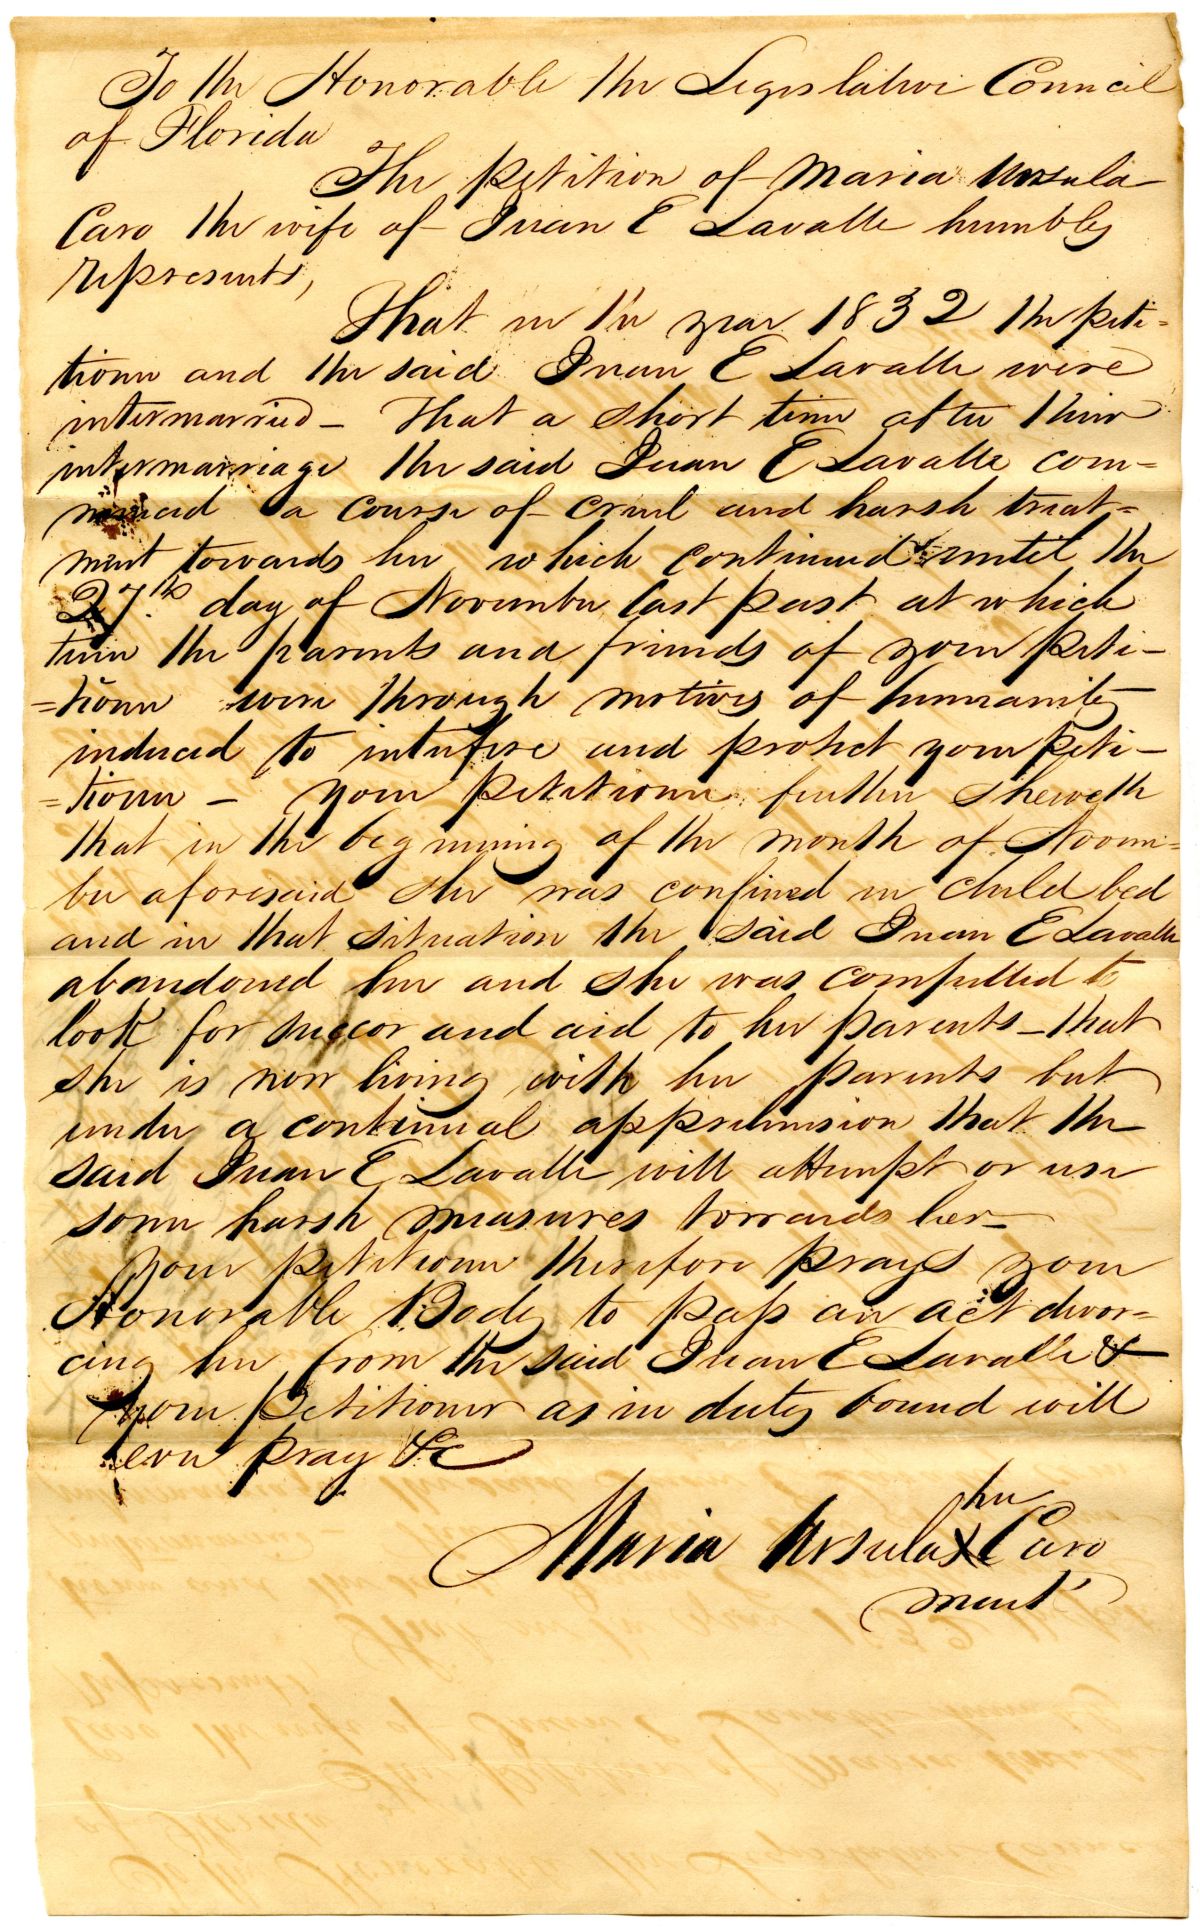 To the Honorable the Legislative Council
of Florida
The petition of Maria Ursula
Caro the wife of Juan E Lavalle humbly
represents,
That in the year 1832 the peti-
tioner and the said Juan E Lavalle were
intermarried - That a short time after their
intermarriage the said Juan E Lavalle com=
menced a course of cruel and harsh treat=
ment towards her which continued until the
27th day of November last past at which
time the parents and friends of your peti-
=tioner were through motives of humanity
induced to interfere and protect your peti-
=tioner - your petitioner further sheweth
that in the beginning of the month of Novem=
ber aforesaid she was confined in child bed
and in that situation the said Juan E Lavalle
abandoned her and she was compelled to
look for succor and aid to her parents - that
she is now living with her parents but
under a continual apprehension that the
said Juan E Lavalle will attempt or use
some harsh measures towards her -
your petitioner therefore prays your
Honorable Body to pass an act divor-
cing her from the said Juan E Lavalle &
your petitioner as in duty bound will
ever pray &c
her
Maria Ursula X Caro
mark